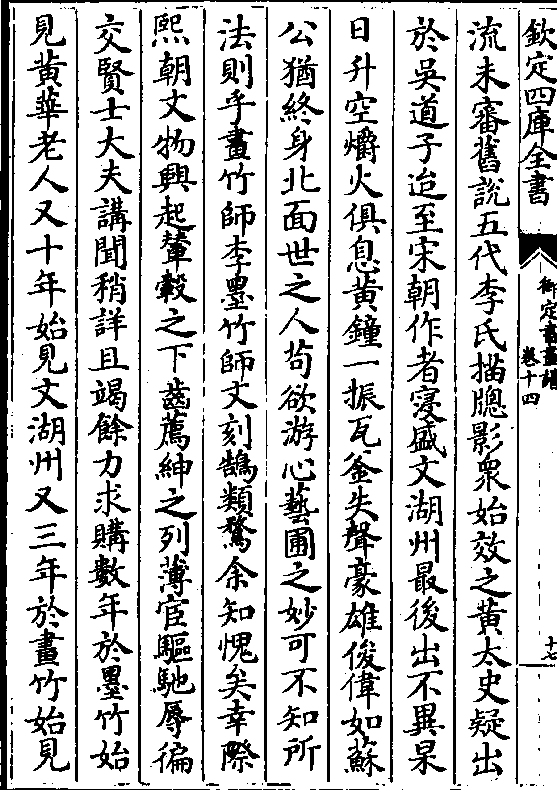 欽定四庫全書
御定書畫譜
卷十四
十七
流未審舊說五代李氏描牕影衆始效之黄太史疑出
於吳道子迨至宋朝作者寖盛文湖州最後出不異杲
日升空爝火俱息黄鐘一振瓦釜失聲豪雄俊偉如蘇
公猶終身北面世之人苟欲游心藝圃之妙可不知所
法則乎畫竹師李墨竹師文刻鵠類鶩余知愧矣幸際
熙朝文物興起輦轂之下齒薦紳之列薄宦驅馳辱徧
交賢士大夫講聞稍詳且竭餘力求購數年於墨竹始
見黄華老人又十年始見文湖州又三年於畫竹始見